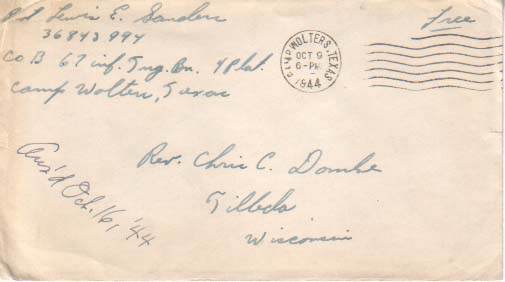 Pvt Lewis E. Sanders
36843994
Co B 67 inf. Tng. Bn. 4 Plat.
Camp Wolters, Texas
Free
CAMP WOLTERS, TEXAS
OCT 9
6-PM
1944
Rev. Chris C. Dombe
Tilleda
Wisconsin
Ans'd Oct. 16, '44